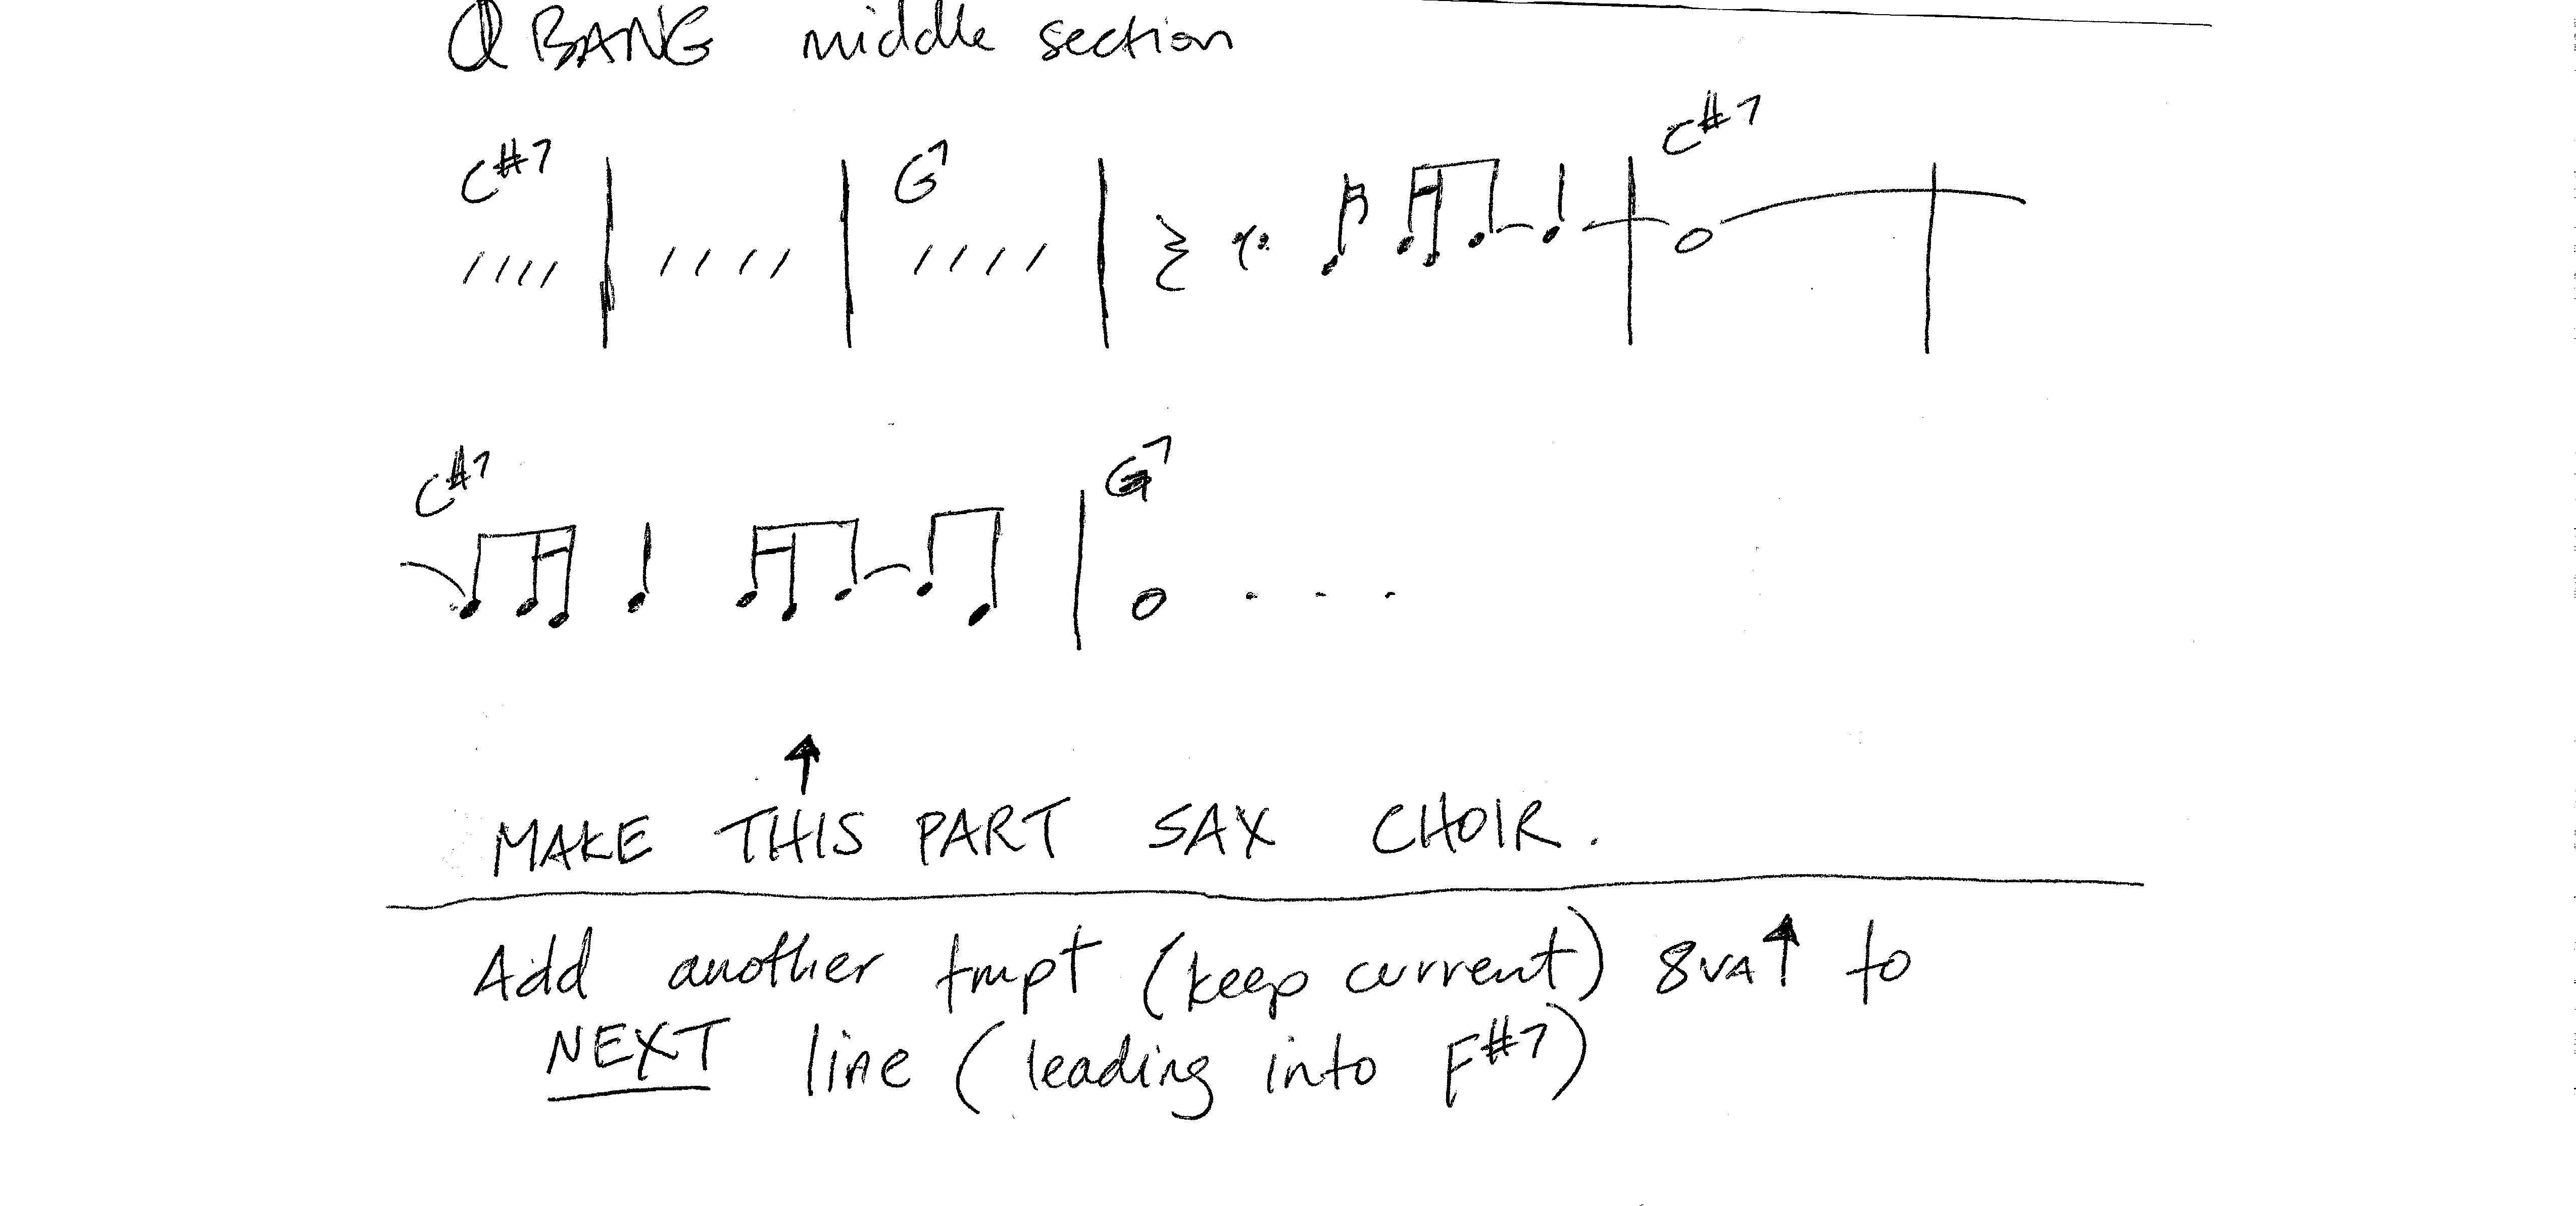 Q BANG middle section
C#7 G7 C#7
C#7 G7
MAKE THIS PART SAX CHOIR.
Add another tmpt (keep current) 8VA↑ to
NEXT line (leading into F#7)